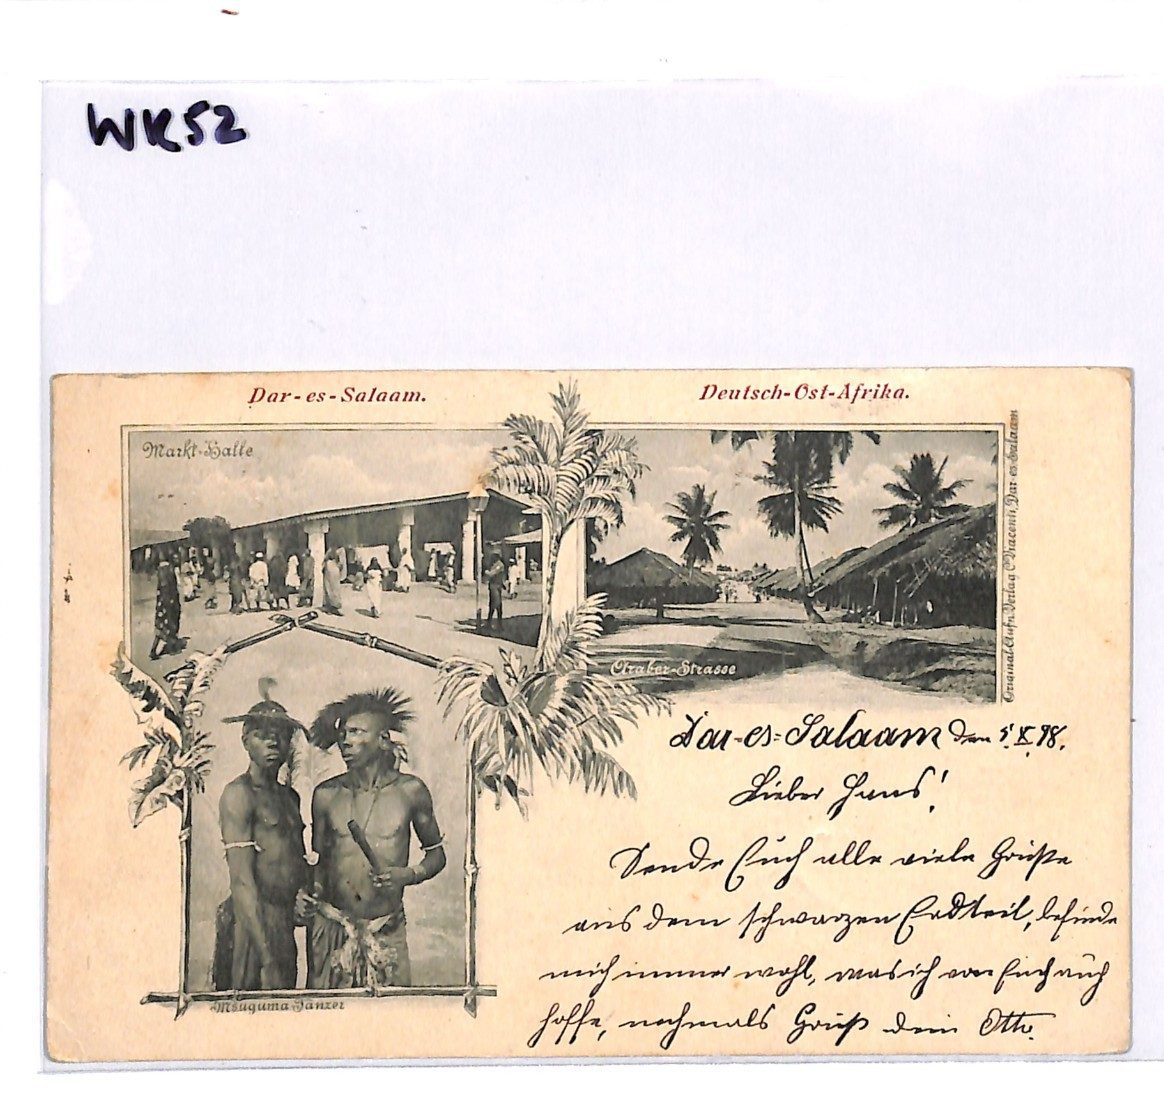 WK52
Dar-es-Salaam.
Deutsch-Ost-Afrika.
Markt-Halle
Araber-Strasse
Original-Aufn. Verlag C. Vincenti, Dar-es-Salaam
Msuguma Tänzer
Dar-es-Salaam den 5. X 98.
Lieber Hans!
Sende Euch alle viele Grüße
aus dem schwarzen Erdteil, befinde
mich immer wohl, was ich von Euch auch
hoffe, nochmals Gruß dein Otto.